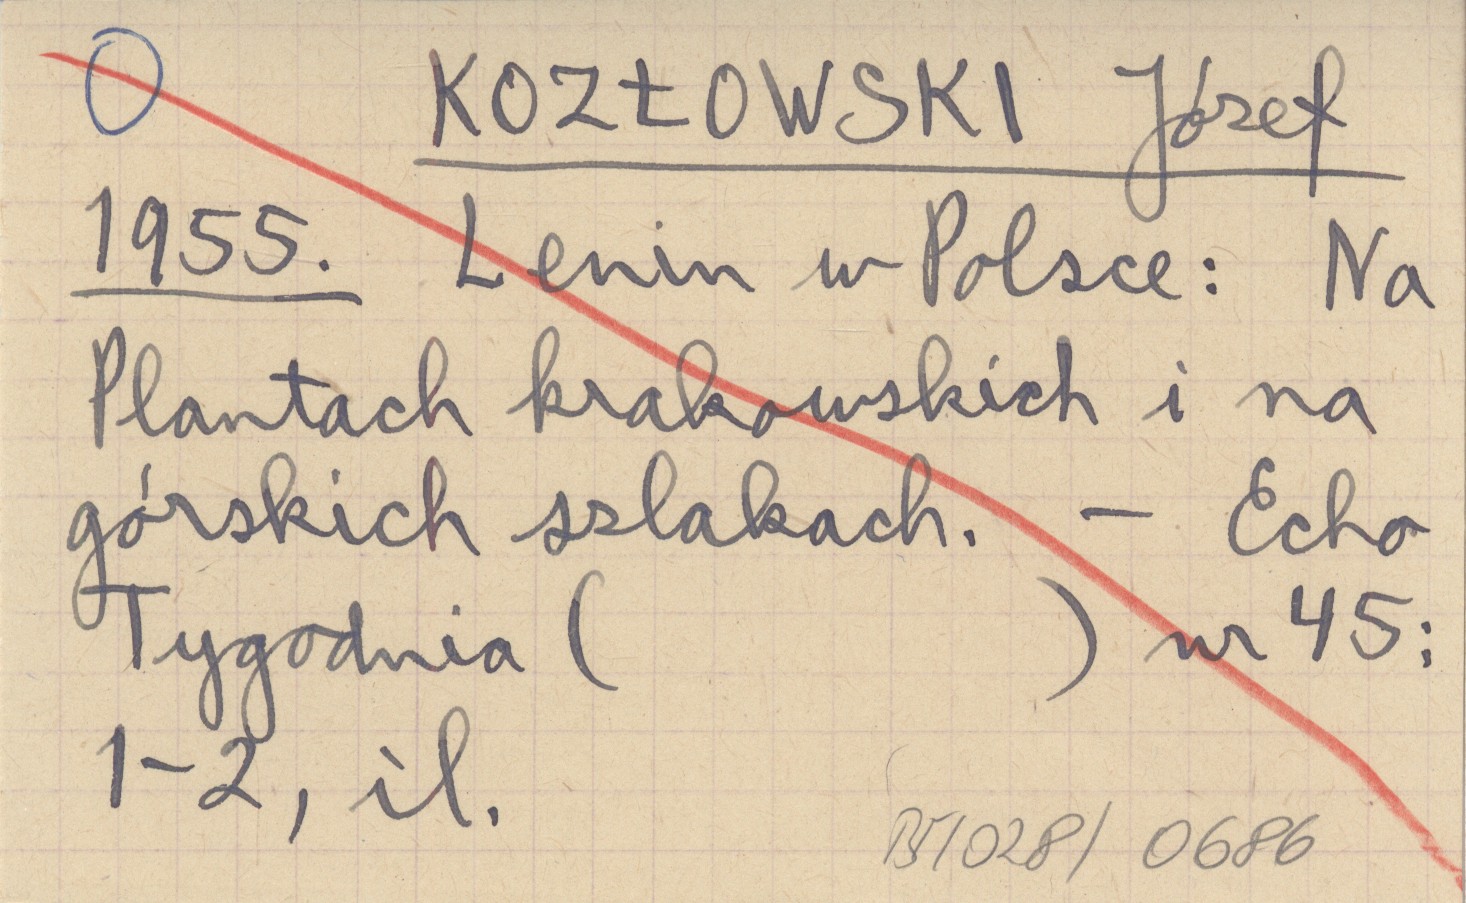 KOZŁOWSKI Józef
1955. Lenin w Polsce: Na
Plantach krakowskich i na
górskich szlakach. - Echo
Tygodnia ( ) nr 45:
1-2, il.
0686